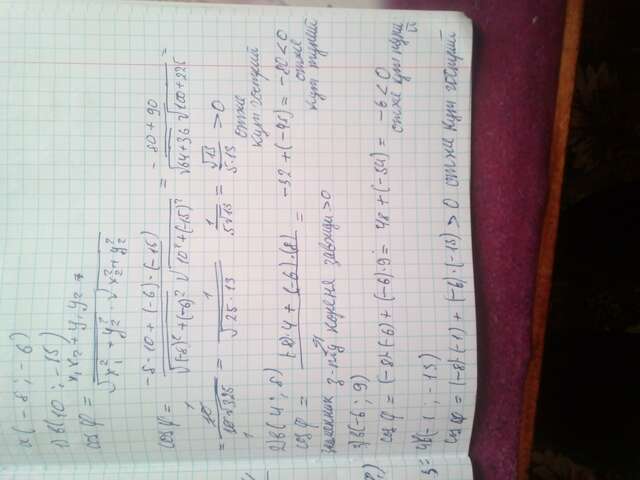 a(-8; -6)
1) b(10; -15)
cos φ = x₁x₂ + y₁y₂ / √x₁² + y₁² · √x₂² + y₂²
cos φ = -8·10 + (-6)·(-15) / √(-8)² + (-6)² · √10² + (-15)² = -80 + 90 / √64+36 √100+225 =
= 10 / 10·√325 = 1 / √25·13 = 1 / 5√13 = √13 / 5·13 > 0
отже
кут гострий
2) b(4; 8)
cos φ = (-8)·4 + (-6)·(8) = -32 + (-48) = -80 < 0
отже
кут тупий
Знаменник з-під кореня завжди > 0
3) b(-6; 9)
cos φ = (-8)·(-6) + (-6)·9 = 48 + (-54) = -6 < 0
отже кут тупий
4) b(-1; -13)
cos φ = (-8)·(-1) + (-6)·(-13) > 0 отже кут гострий